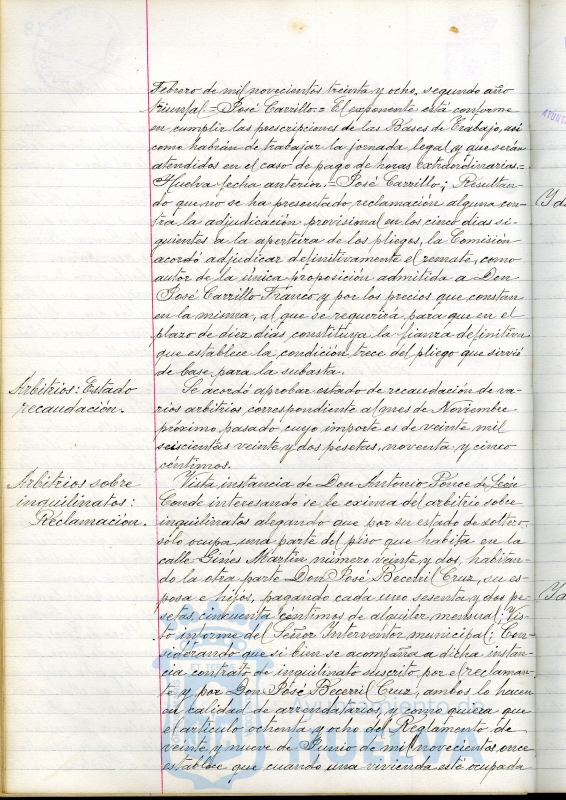 Febrero de mil novecientos treinta y ocho, segundo año
triunfal.= José Carrillo.= El exponente está conforme
en cumplir las prescripciones de las Bases de Trabajo, asi
como habrán de trabajar la jornada legal y que serán
atendidos en el caso de pago de horas extraordinarias.=
Huelva fecha anterior.= José Carrillo; Resultan-
do que no se ha presentado reclamación alguna con-
tra la adjudicación provisional en los cinco dias si-
guientes a la apertura de los pliegos, la Comisión
acordó adjudicar definitivamente el remate, como
autor de la única proposición admitida a Don
José Carrillo Franco y por los precios que constan
en la misma, al que se requerirá para que en el
plazo de diez dias constituya la fianza definitiva
que establece la condición trece del pliego que sirvió
de base para la subasta.
Arbitrios: Estado
recaudación.
Se acordó aprobar estado de recaudación de va-
rios arbitrios correspondiente al mes de Noviembre
próximo pasado cuyo importe es de veinte mil
seiscientas veinte y dos pesetas, noventa y cinco
céntimos.
Arbitrios sobre
inquilinatos:
Reclamación.
Vista instancia de Don Antonio Ponce de León
Conde interesando se le exima del arbitrio sobre
inquilinatos alegando que por su estado de soltero
sólo ocupa una parte del piso que habita en la
calle Ginés Martín número veinte y dos, habitan-
do la otra parte Don José Becerril Cruz, su es-
posa e hijos, pagando cada uno sesenta y dos pe-
setas, cincuenta céntimos de alquiler mensual; Vis-
to informe del Señor Interventor municipal; Con-
siderando que si bien se acompaña a dicha instan-
cia contrato de inquilinato suscrito por el reclaman-
te y por Don José Becerril Cruz, ambos lo hacen
en calidad de arrendatarios, y como quiera que
el artículo ochenta y ocho del Reglamento de
veinte y nueve de Junio de mil novecientos once
establece que cuando una vivienda esté ocupada